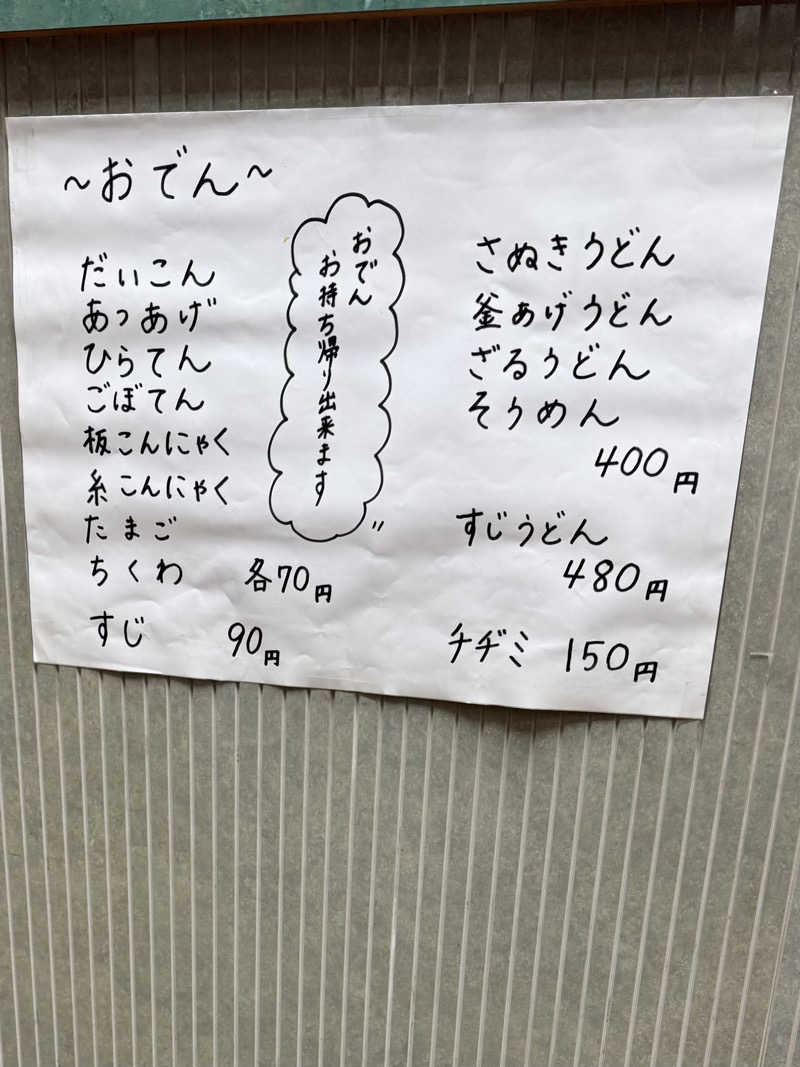 ~おでん~
だいこん
あつあげ
ひらてん
ごぼてん
板こんにゃく
糸こんにゃく
たまご
ちくわ 各70円
すじ 90円
おでん
お持ち帰り出来ます
さぬきうどん
釜あげうどん
ざるうどん
そうめん
400円
すじうどん
480円
チヂミ 150円